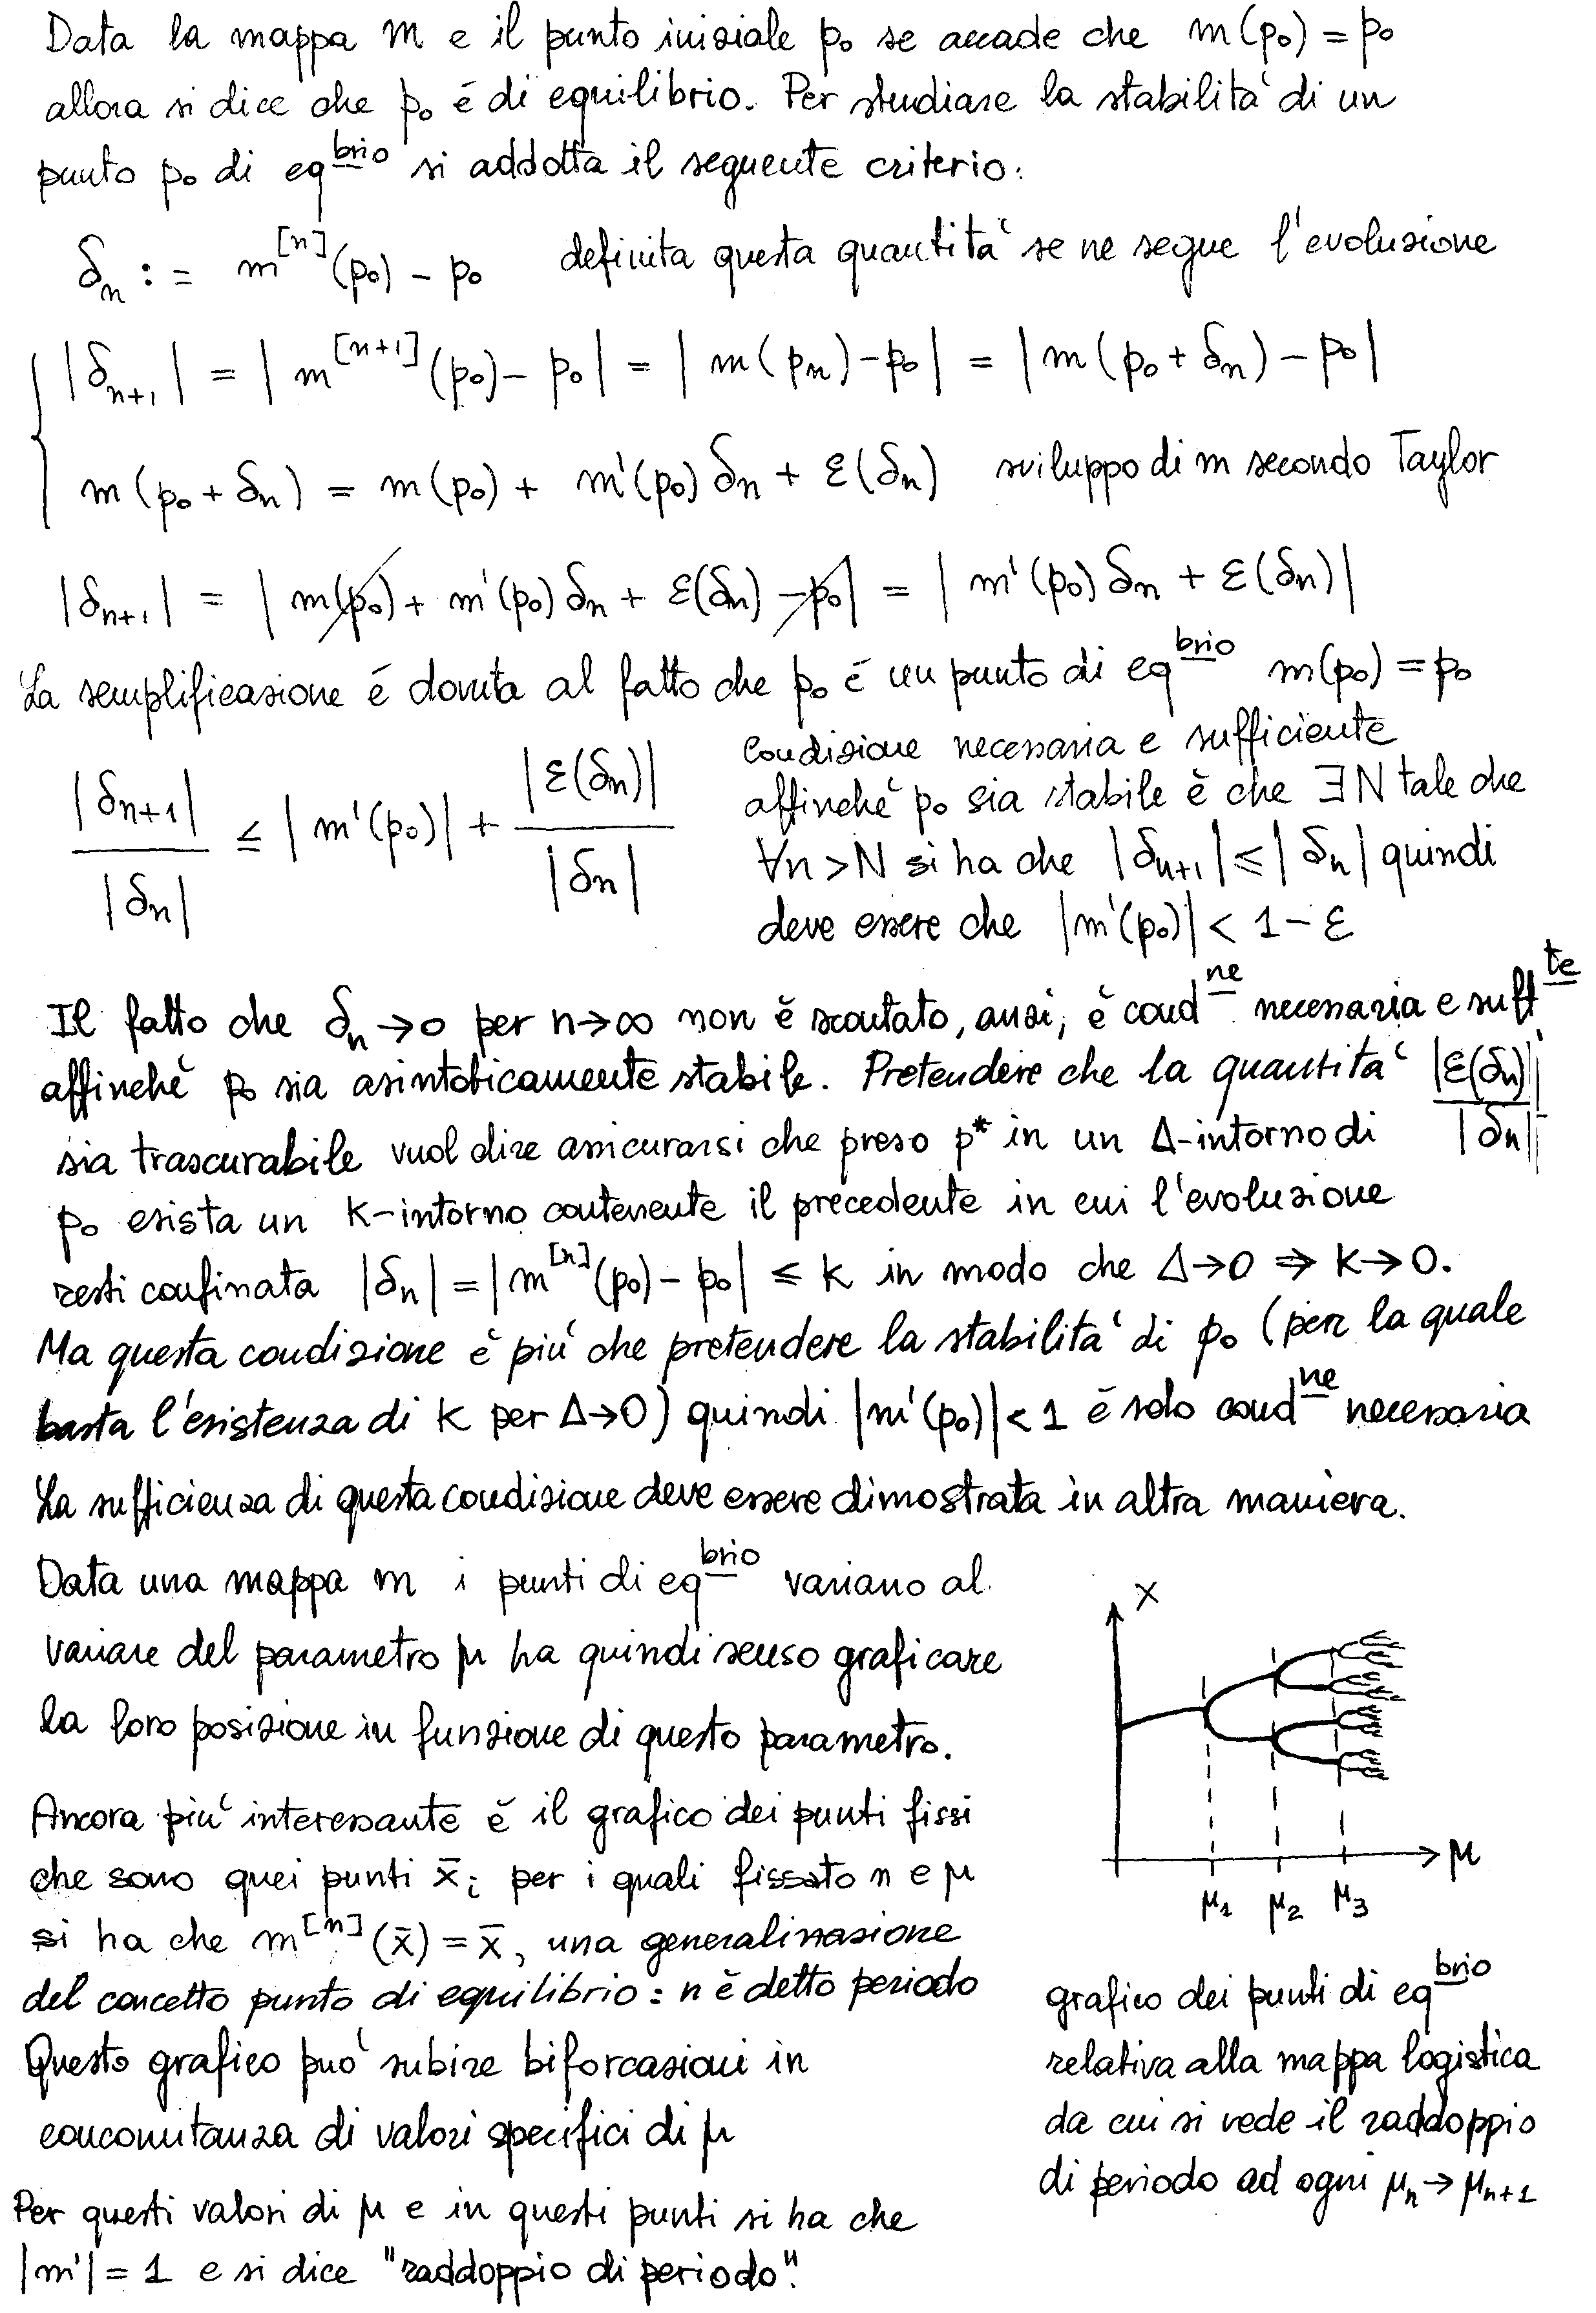 Data la mappa m e il punto iniziale p₀ se accade che m(p₀) = p₀
allora si dice che p₀ é di equilibrio. Per studiare la stabilità di un
punto p₀ di eq^brio si addotta il seguente criterio:
δₙ := m^[n](p₀) - p₀ definita questa quantità se ne segue l'evoluzione
|δₙ₊₁| = |m^[n+1](p₀) - p₀| = |m(pₙ) - p₀| = |m(p₀ + δₙ) - p₀|
m(p₀ + δₙ) = m(p₀) + m'(p₀) δₙ + ε(δₙ) sviluppo di m secondo Taylor
|δₙ₊₁| = |m(p₀) + m'(p₀) δₙ + ε(δₙ) - p₀| = |m'(p₀) δₙ + ε(δₙ)|
La semplificazione é dovuta al fatto che p₀ é un punto di eq^brio m(p₀) = p₀
|δₙ₊₁| / |δₙ| ≤ |m'(p₀)| + |ε(δₙ)| / |δₙ|
condizione necessaria e sufficiente
affinché p₀ sia stabile è che ∃N tale che
∀n > N si ha che |δₙ₊₁| ≤ |δₙ| quindi
deve essere che |m'(p₀)| < 1 - ε
Il fatto che δₙ → 0 per n → ∞ non è scontato, anzi, è cond^ne necessaria e suff^te
affinché p₀ sia asintoticamente stabile. Pretendere che la quantità |ε(δₙ)| / |δₙ|
sia trascurabile vuol dire assicurarsi che preso p* in un Δ-intorno di
p₀ esista un k-intorno contenente il precedente in cui l'evoluzione
resti confinata |δₙ| = |m^[n](p₀) - p₀| ≤ k in modo che Δ→0 ⇒ k→0.
Ma questa condizione è più che pretendere la stabilità di p₀ (per la quale
basta l'esistenza di k per Δ→0) quindi |m'(p₀)| < 1 é solo cond^ne necessaria
La sufficienza di questa condizione deve essere dimostrata in altra maniera.
Data una mappa m i punti di eq^brio variano al
variare del parametro μ ha quindi senso graficare
la loro posizione in funzione di questo parametro.
Ancora più interessante è il grafico dei punti fissi
che sono quei punti x̄ᵢ per i quali fissato n e μ
si ha che m^[n](x̄) = x̄, una generalizzazione
del concetto punto di equilibrio: n è detto periodo
Questo grafico può subire biforcazioni in
concomitanza di valori specifici di μ
Per questi valori di μ e in questi punti si ha che
|m'| = 1 e si dice "raddoppio di periodo".
x
μ
μ₁ μ₂ μ₃
grafico dei punti di eq^brio
relativa alla mappa logistica
da cui si vede il raddoppio
di periodo ad ogni μₙ → μₙ₊₁